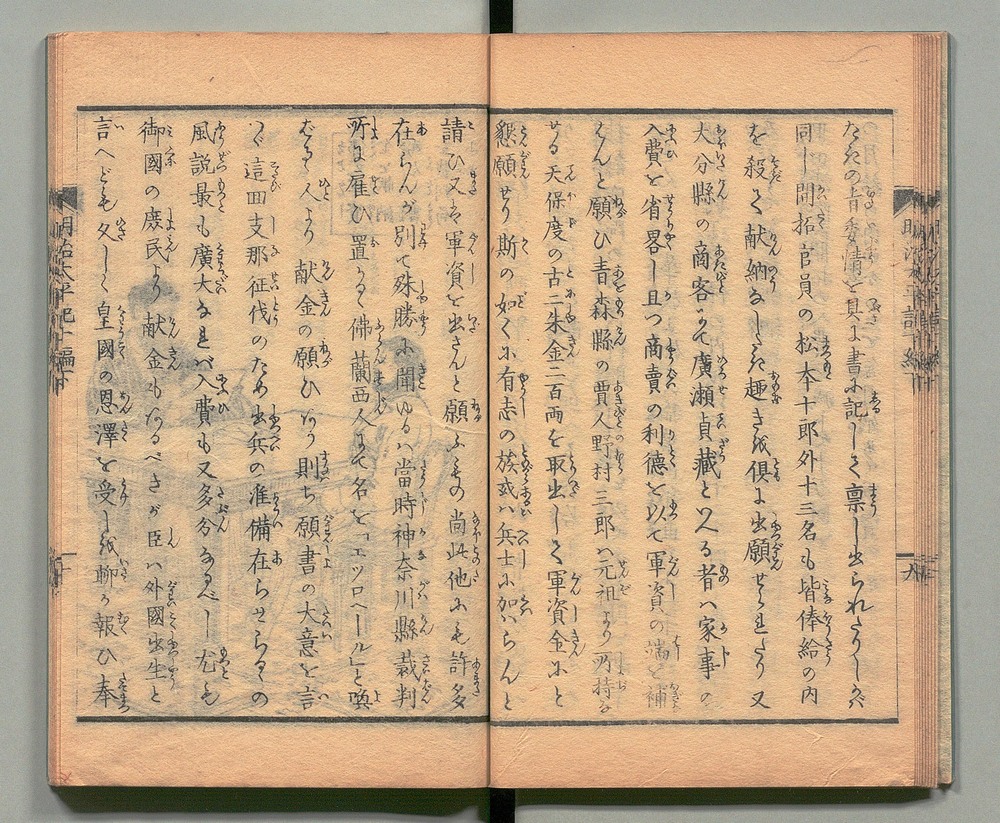 同し開拓官員の松本十郎外十三名も皆俸給の内
を殺て献納なしたき趣き越倶に出願せられたり又
大分縣の商客にて廣瀬貞藏といへる者ハ家事の
入費を省畧し且つ商賣の利徳を以て軍資の端を補
はんと願ひ青森縣の賈人野村三郎ハ元祖より所持る
せる天保度の古二朱金二百両を取出して軍資金にと
懇願せり斯の如くに有志の族或ハ兵士に加はらんと
請ひ又は軍資を出さんと願ふもの尚此他にも許多
在らんが別て殊勝に聞ゆるハ當時神奈川縣裁判
所に雇ひ置るゝ佛蘭西人にて名を「エツロヘール」と喚
はるゝ人より献金の願ひあり則ち願書の大意を言
へバ這回支那征伐のため出兵の准備在らせらるゝの
風説最も廣大なれバ入費も又多分なるべし尤も
御國の庻民より献金もあるべきが臣ハ外國出生と
言へども久しく皇國の恩澤を受し越聊か報ひ奉
明治太平記十編下
九